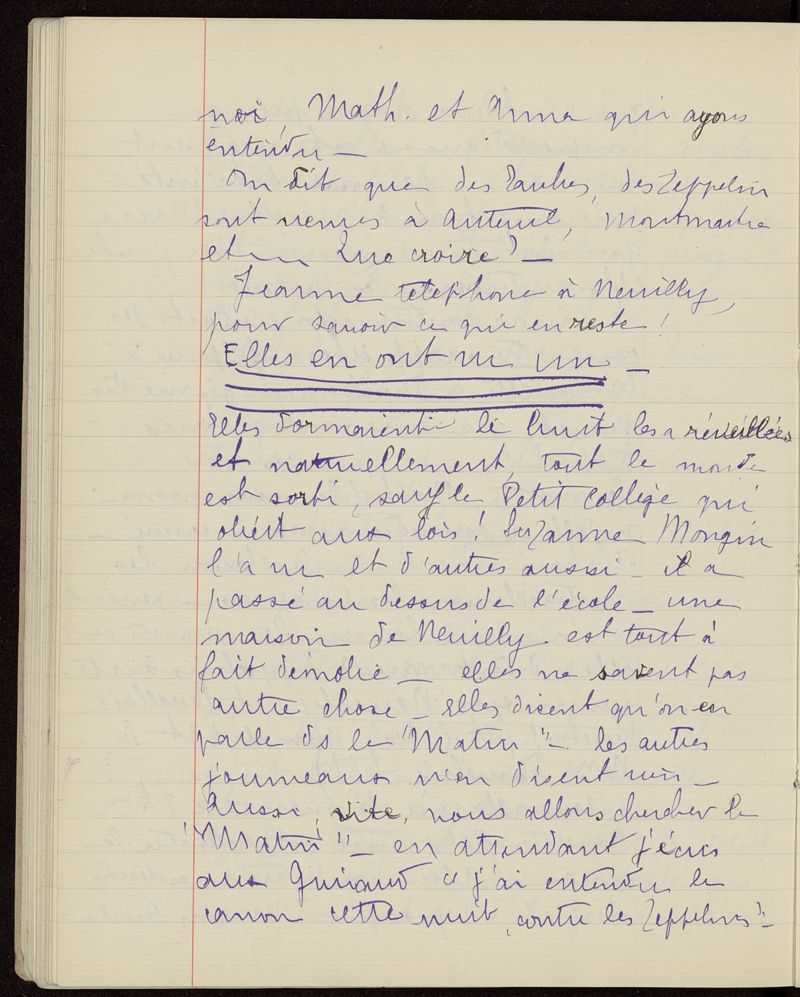 moi Math. et Anna qui ayons
entendu —
On dit que des Taubes, des Zeppelin
sont venus à Auteuil, Montmartre
et Que croire? —
Jeanne téléphone à Neuilly,
pour savoir ce qui en reste!
Elles en ont vu un —
Elles dormaient le bruit les a réveillées
et naturellement, tout le monde
est sorti, sauf le Petit Collège qui
obéit aux lois! Suzanne Mongin
l'a vu et d'autres aussi — il a
passé au dessus de l'école — une
maison de Neuilly est tout à
fait démolie — elles ne savent pas
autre chose — Elles disent qu'on en
parle ds le "Matin" — les autres
journeaux n'en disent rien —
Aussi, vite, nous allons chercher le
"Matin" — en attendant j'écris
aux Guiraud "j'ai entendu le
canon cette nuit, contre les Zeppelins" —